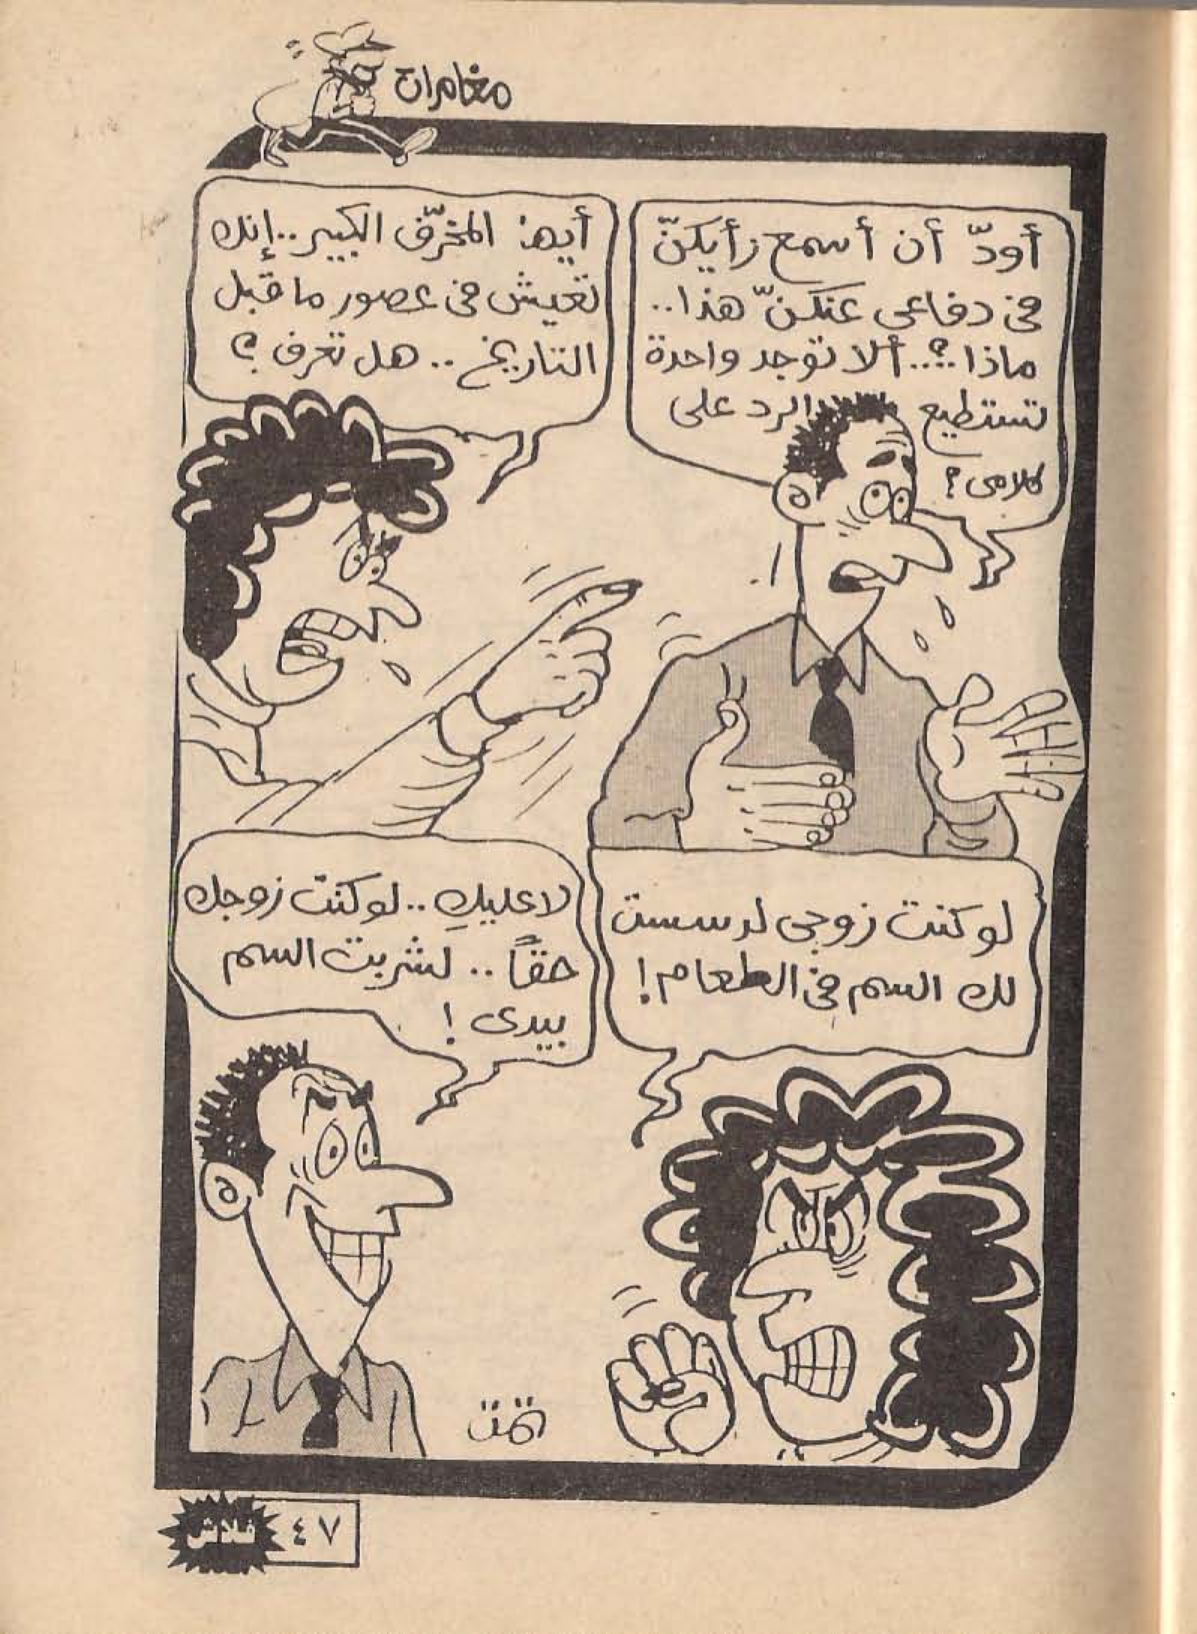 مغامرات
أودّ أن أسمع رأيكنّ
فى دفاعى عنكنّ هذا..
ماذا؟.. ألا توجد واحدة
تستطيع الرد على
كلامى؟
أيها المخرّف الكبير.. إنك
تعيش فى عصور ما قبل
التاريخ.. هل تعرف؟
لو كنت زوجى لدسست
لك السم فى الطعام!
لا عليكِ.. لو كنت زوجك
حقاً.. لشربت السم
بيدى!
تمت
فلاش
٤٧